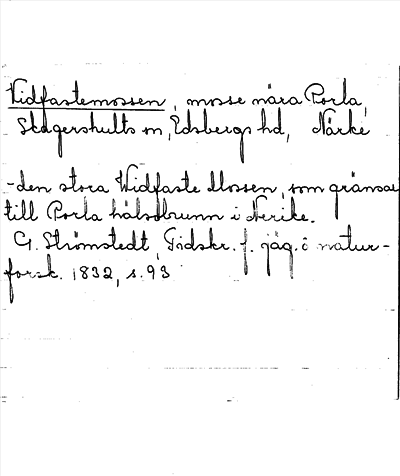 Vidfastemossen, mosse nära Porla,
Skagershults sn, Edsbergs hd, Närke
-den stora Widfaste Mossen, som gränsar
till Porla hälsobrunn i Nerike.
G. Strömstedt, Tidskr. f. jäg. o natur-
forsk. 1832, s. 93